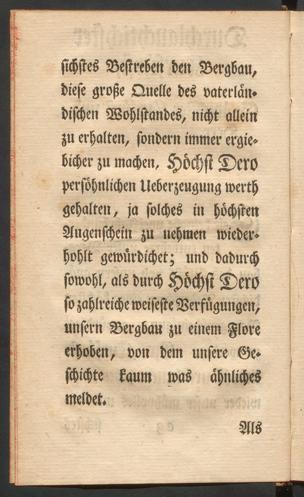 sichstes Bestreben den Bergbau,
diese große Quelle des vaterlän-
dischen Wohlstandes, nicht allein
zu erhalten, sondern immer ergie-
bicher zu machen, Höchst Dero
persöhnlichen Ueberzeugung werth
gehalten, ja solches in höchsten
Augenschein zu nehmen wieder-
hohlt gewürdichet; und dadurch
sowohl, als durch Höchst Dero
so zahlreiche weiseste Verfügungen,
unsern Bergbau zu einem Flore
erhoben, von dem unsere Ge-
schichte kaum was ähnliches
meldet.
Als